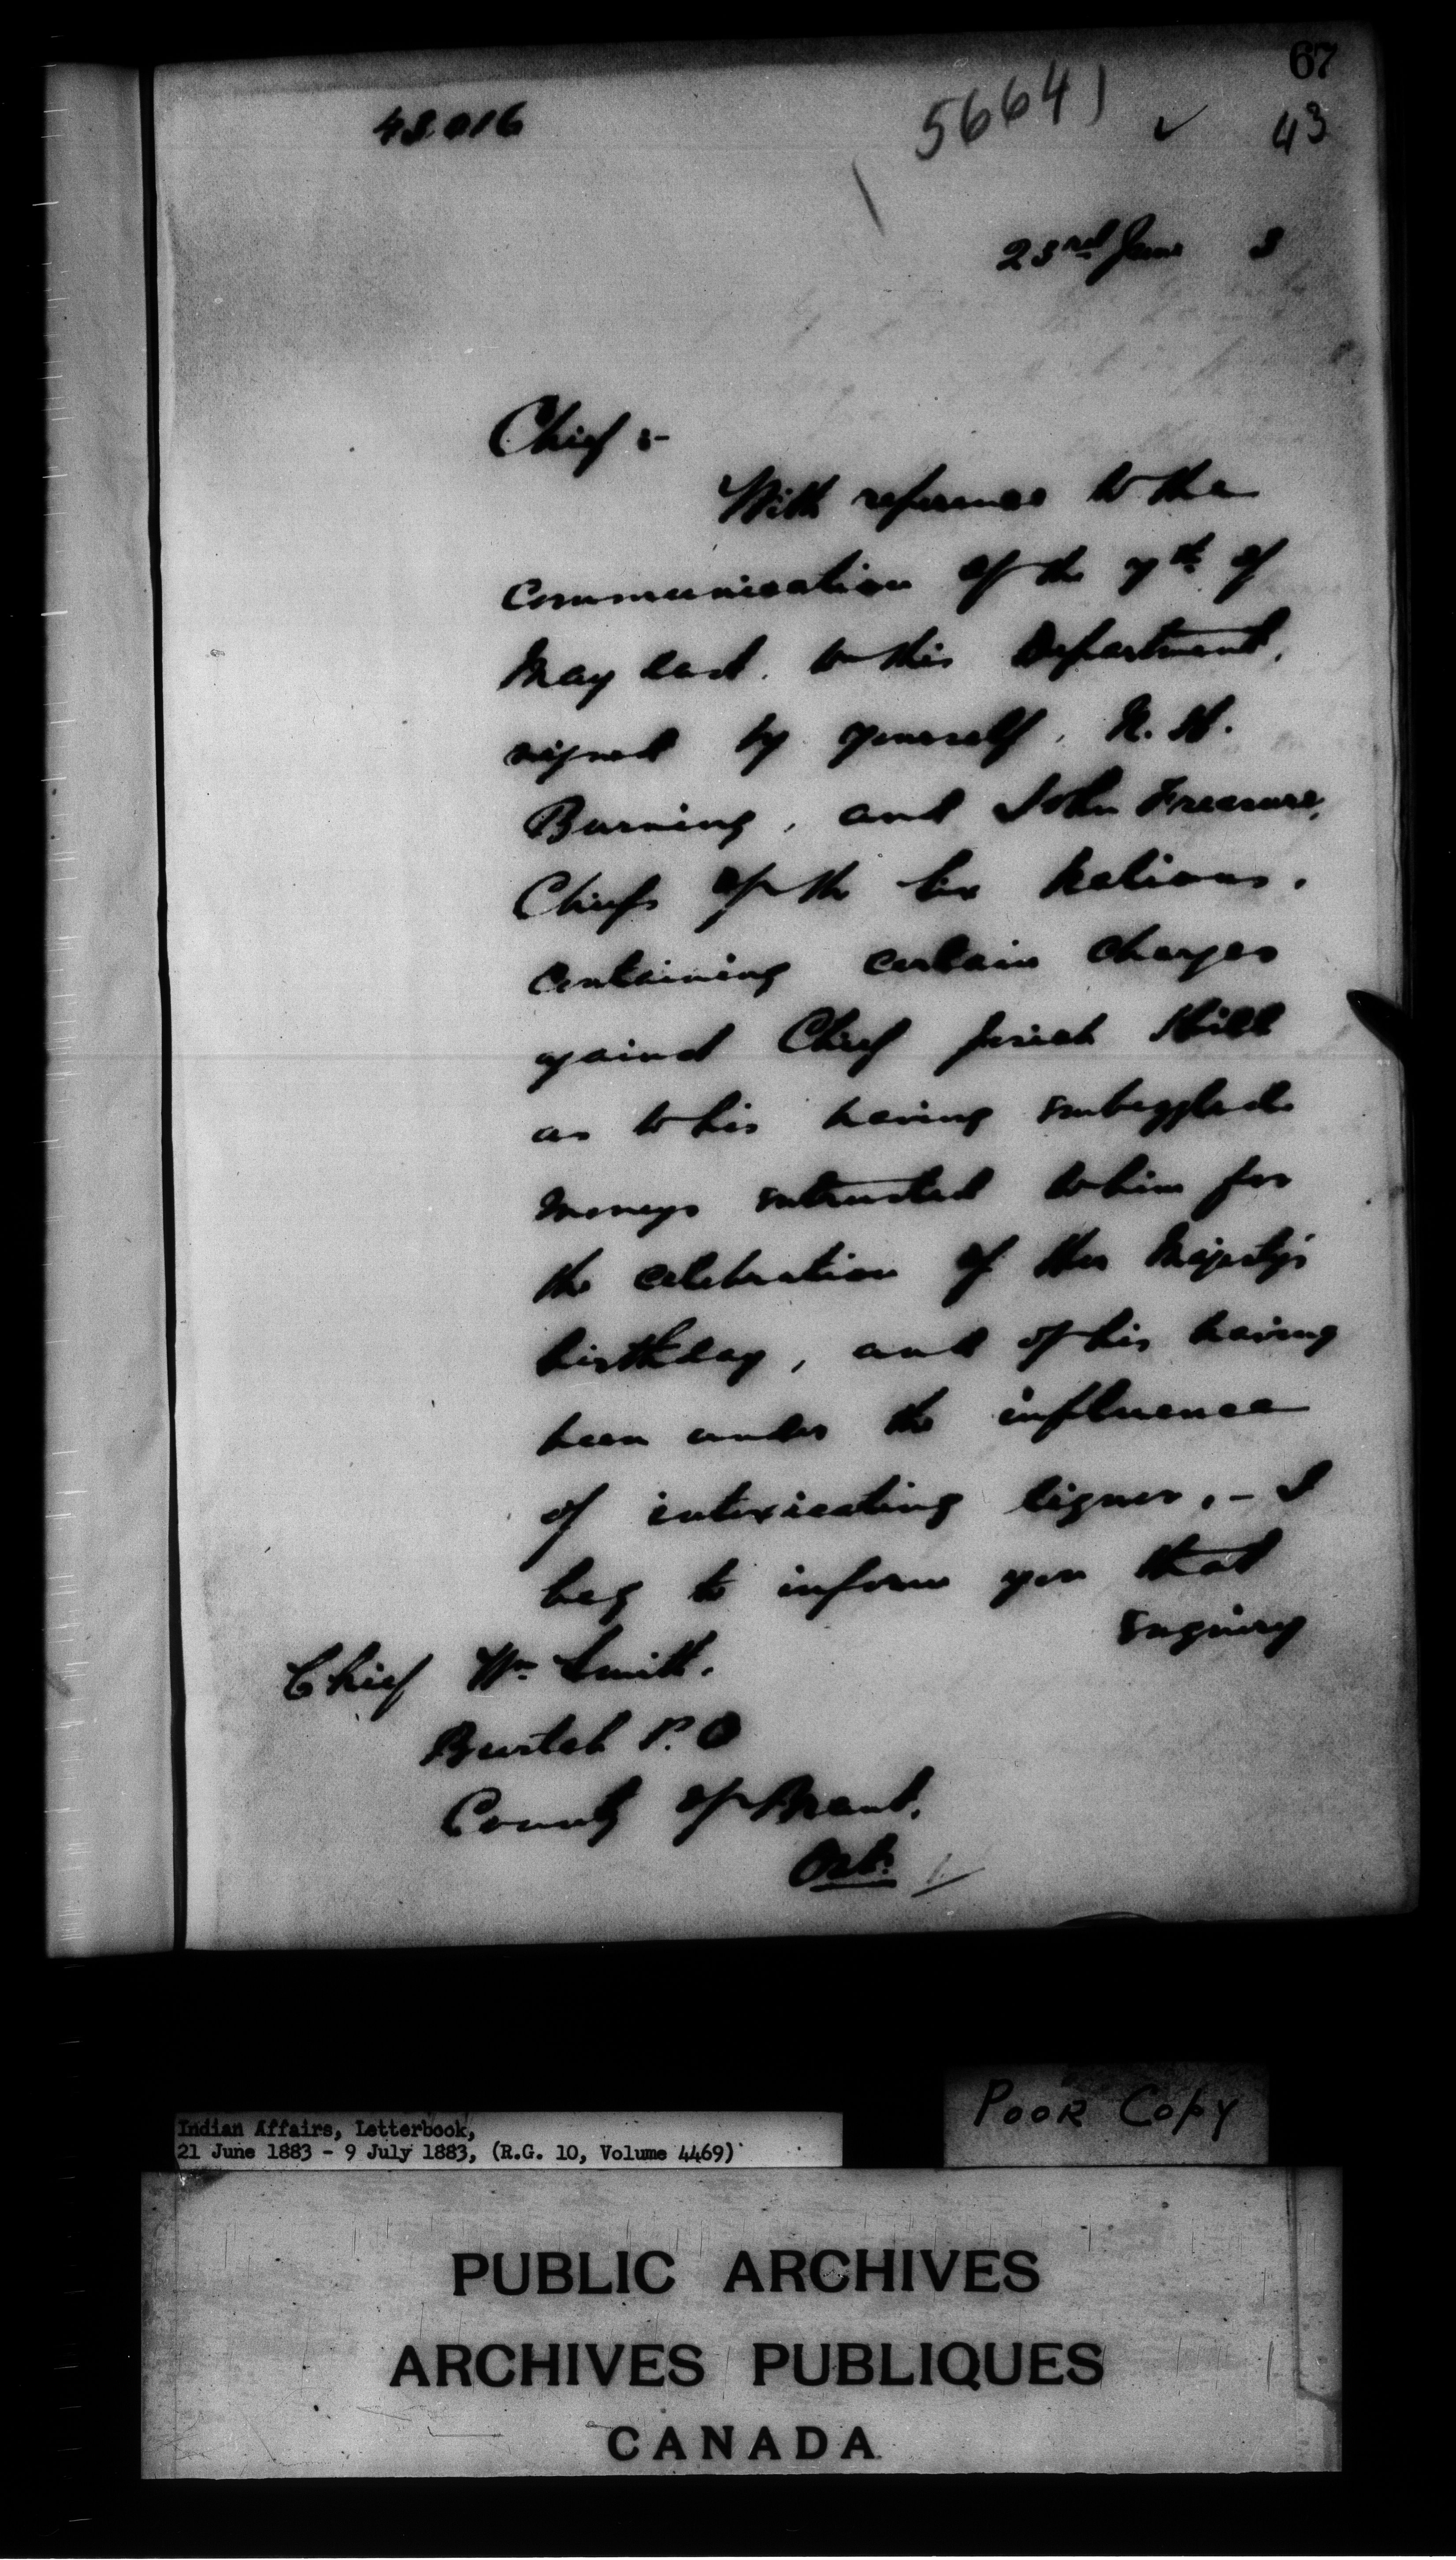 67
43.016
56641
43
23rd June 3
Chief :-
With reference to the
communication of the 7th of
May last, to this Department,
signed by yourself, N. H.
Burning, and John
Chiefs of the Six Nations,
containing certain charges
against Chief Josiah Hill
as to his having embezzled
moneys entrusted to him for
the celebration of Her Majesty's
birthday, and of his having
been under the influence
of intoxicating liquor, - I
beg to inform you that
enquiry
Chief Wm Smith.
Burtch P.O
County of Brant.
Ont.
Poor Copy
Indian Affairs, Letterbook,
21 June 1883 - 9 July 1883, (R.G. 10, Volume 4469)
PUBLIC ARCHIVES
ARCHIVES PUBLIQUES
CANADA